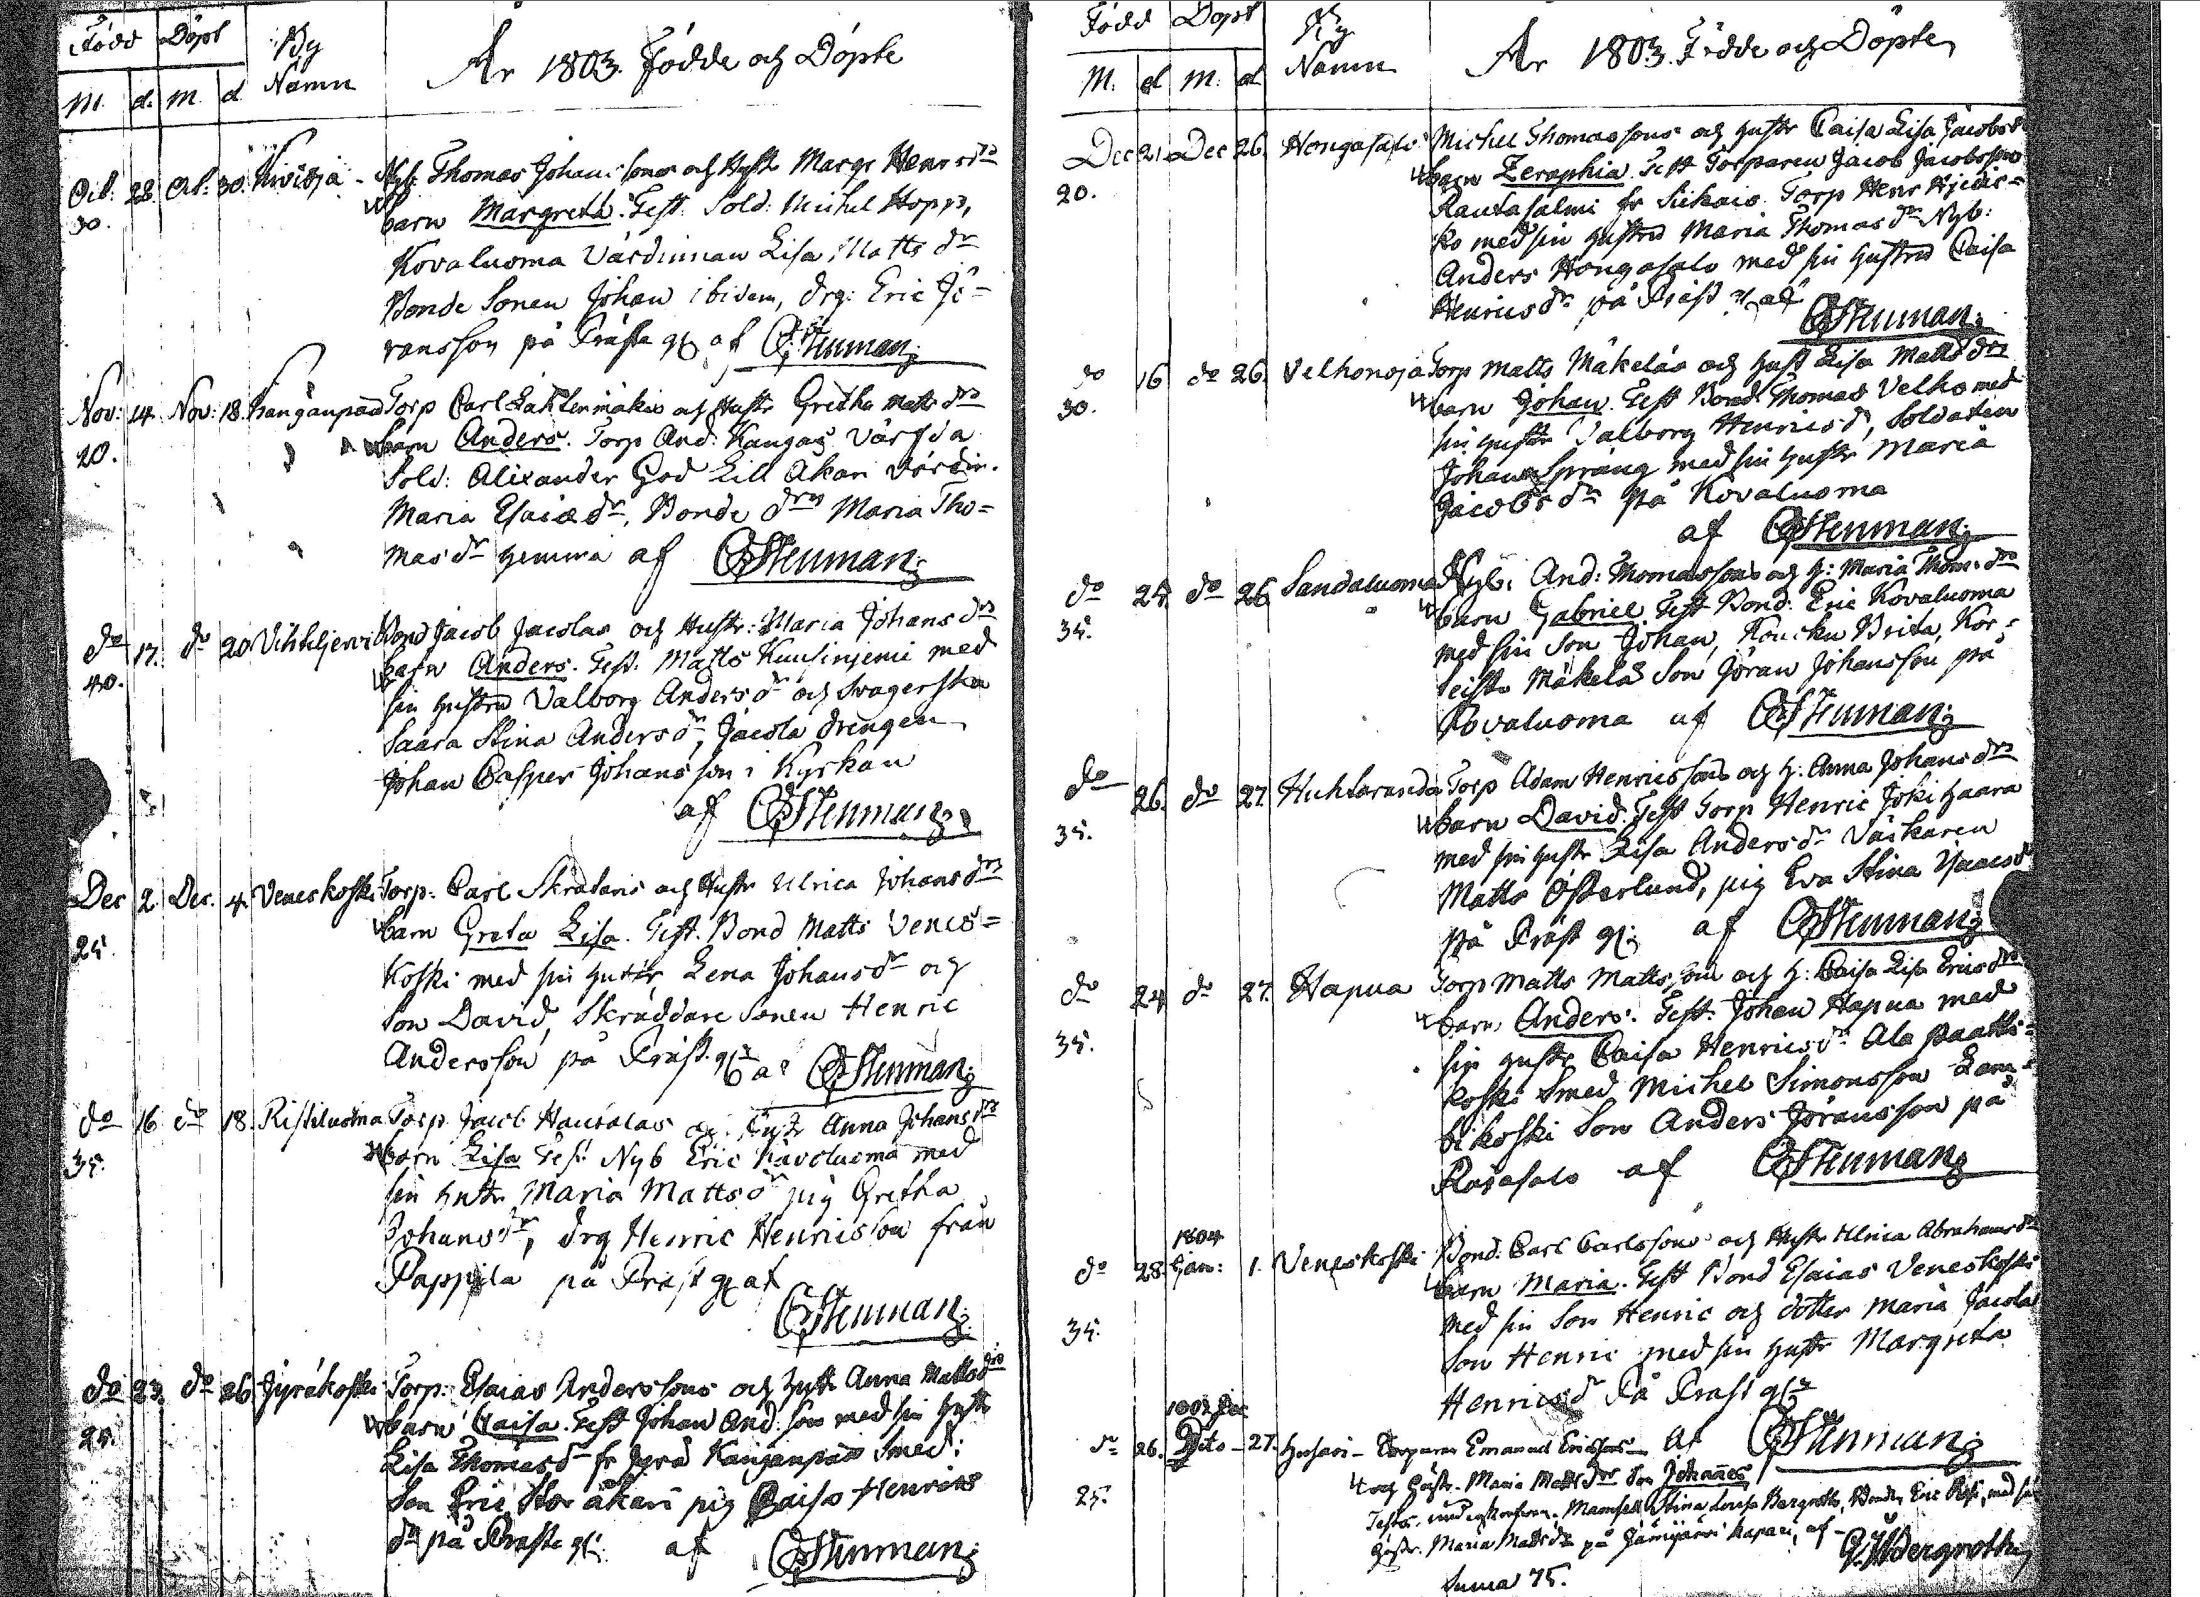 Född Döpt By Namn År 1803. Födde och Döpte
M. d. M. d
Oct. 28. Oct. 30. Kivioja - Nyb. Thomas Johanssons och Hustr Margr Henrsdrs
30. barn Margreta. Test. Sold: Michel Hopp,
Kovaluoma Värdinnan Lisa Matts dr
Bonde Sonen Johan ibidem, drg: Eric Jö=
ransson på Prästg af CStenman
Nov: 14. Nov: 18. Kangänpää Torp Carl Lahtenmäkis och Hustr Gretha Matts drs
20. barn Anders. Torp And: Kangas
Sold: Alexander God Lill Åkari värdin.
Maria Esaiædr, Bonde drn Maria Tho=
mas dr hemma af CStenman
do 17. do 20 Vihteljervi Bond Jacob Jacolas och Hustr: Maria Johans drs
40. barn Anders. Test. Matts Kuusinjemi med
sin hustru Valborg Anders dr och Svagerska
Saara Stina Anders dr, Jacola drengen
Johan Casper Johansson i Kyrkan
af CStenman
Dec 2. Dec. 4. Veneskoski Torp. Carl Skrataris och Hustr Ulrica Johans drs
25. barn Greta Lisa. Test. Bond Matts Venes=
koski med sin hustr Lena Johans dr och
Son David, Skräddare Sonen Henric
Andersson på Präst.g af CStenman
do 16 do 18. Ristiluoma Torp. Jacob Hautalas och Hustr Anna Johans drs
35. barn Lisa Test. Nyb Eric Kavoluoma med
sin hustr Maria Matts dr pig Gretha
Johans dr, drg Henric Henricsson från
Pappila på Präst g af
CStenman
do 23. do 26 Jyräkoski Torp: Esaias Anderssons och hustr Anna Mattsdrs
25. barn Caisa. Test Johan And: son med sin hustr
Lisa Thomas dr fr Jyrä Kangänpää Smed:
Son Eric Stor åkari pig Caisa Henrics
dr på Präste g. af CStenman
Född Döpt By Namn År 1803. Födde och Döpte
M. d M. d
Dec 21. Dec 26. Hongasalo Michel Thomassons och hustr Caisa Lisa Jacobsd
20. barn Zeraphia. Test Torparen Jacob Jacobsson
Rautasalmi fr Siikais Torp Henr Hjedic=
ko med sin hustru Maria Thomas dr Nyb:
Anders Hongosalo med sin hustru Caisa
Henrics dr på Präst g af
CStenman
do 16 do 26. Velhonoja Torp Matts Mäkeläs och hust Lisa Matts drs
30. barn Johan. Test Bond Thomas Velho med
sin hustr Valborg Henrics d, Soldaten
Johan Spräng med sin hustr Maria
Jacobs dr på Kovaluoma
af CStenman
do 24. do 26. Sandaluoma Nyb. And: Thomassons och h: Maria Thom: drs
35. barn Gabriel. Test Bond. Eric Kovaluoma
med sin Son Johan, Brita, Kor=
teista Mäkelä Son Jöran Johansson på
Kovaluoma af CStenman
do 26. do 27. Huhtaranda Torp Adam Henricssons och h: Anna Johans drs
35. barn David. Test Torp Henric Jokihaara
med sin hustr Lisa Anders dr Väskaren
Matts Österlund, pig Eva Stina Isaacsd
på Präst g: af CStenman
do 24 do 27. Hapua Torp Matts Mattssons och h: Caisa Lisa Erics drs
35. barn Anders. Test. Johan Hapua med
sin hustr Caisa Henrics dr Ala Paatts=
koski Smed Michel Simonsson Lam=
bikoski Son Anders Jöransson på
af CStenman
1804
do 28. Jan: 1. Veneskoski Bond. Carl Carlssons och Hustr Ulrica Abrahamsdrs
35. barn Maria. Test Bond Esaias Veneskoski
med sin Son Henric och dotter Maria Jacolas
Son Henric med sin hustr Margreta
Henrics dr På Präst g
af CStenman
1803 Dec
do 26. Dito - 27. Husari - Torparen Emanuel Ericssons
25. och Hustr. Maria Matts drs Son Johannes
Testes. Mamsell Stina Lovisa Bergroth, Bonden Eric Rosi, med sin
Hustr. Maria Matts dr på Jämijärvi Kapell, af
Bergroth
Suma 75.